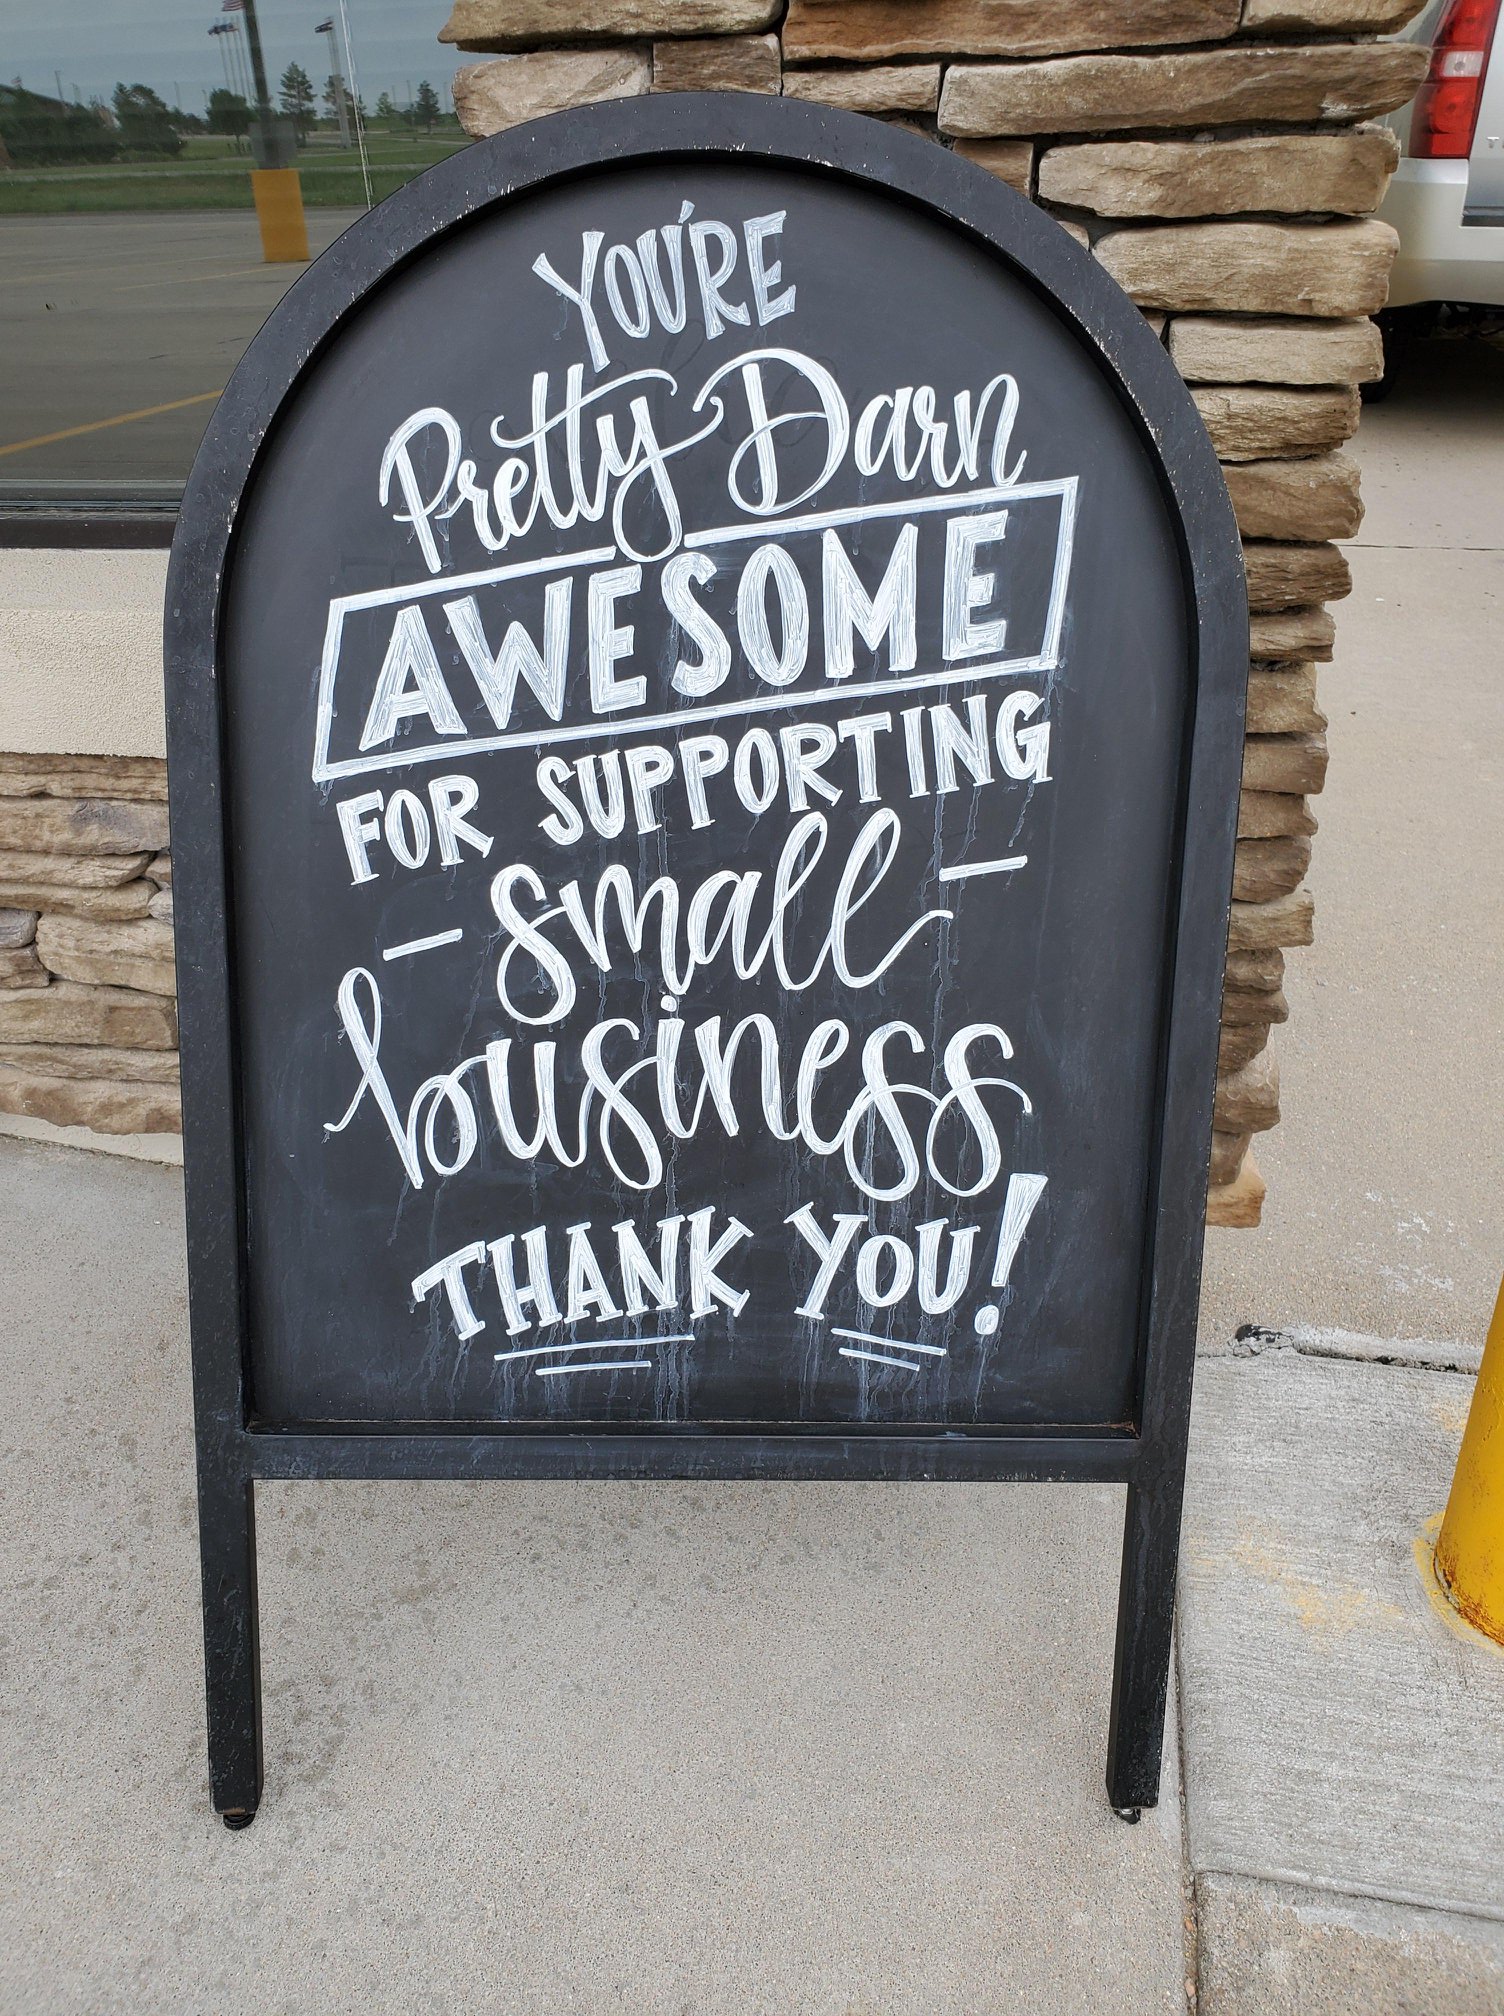 YOU'RE
Pretty Darn
AWESOME
FOR SUPPORTING
- small -
business
THANK YOU!